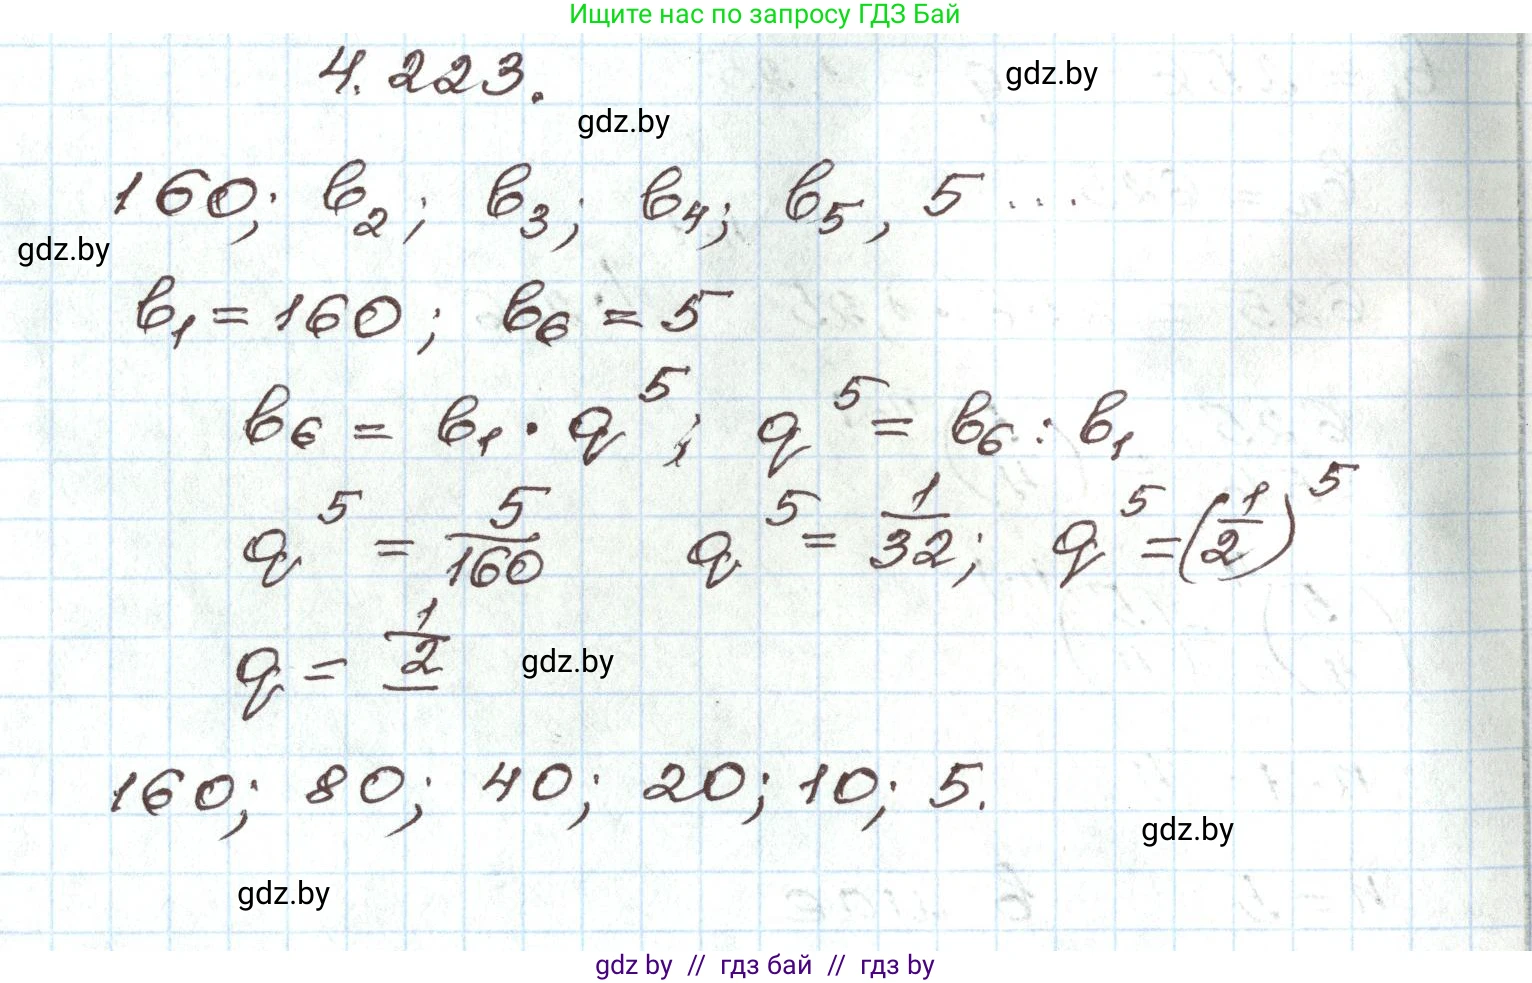 Ищите нас по запросу ГДЗ Бай
4.223.
gdz.by
gdz.by
160; b₂; b₃; b₄; b₅, 5 ...
gdz.by
b₁ = 160; b₆ = 5
b₆ = b₁ · q⁵; q⁵ = b₆ : b₁
q⁵ = 5/160 q⁵ = 1/32; q⁵ = (1/2)⁵
q = 1/2
gdz.by
160; 80; 40; 20; 10; 5.
gdz.by
gdz.by
gdz by // гдз бай // гдз by